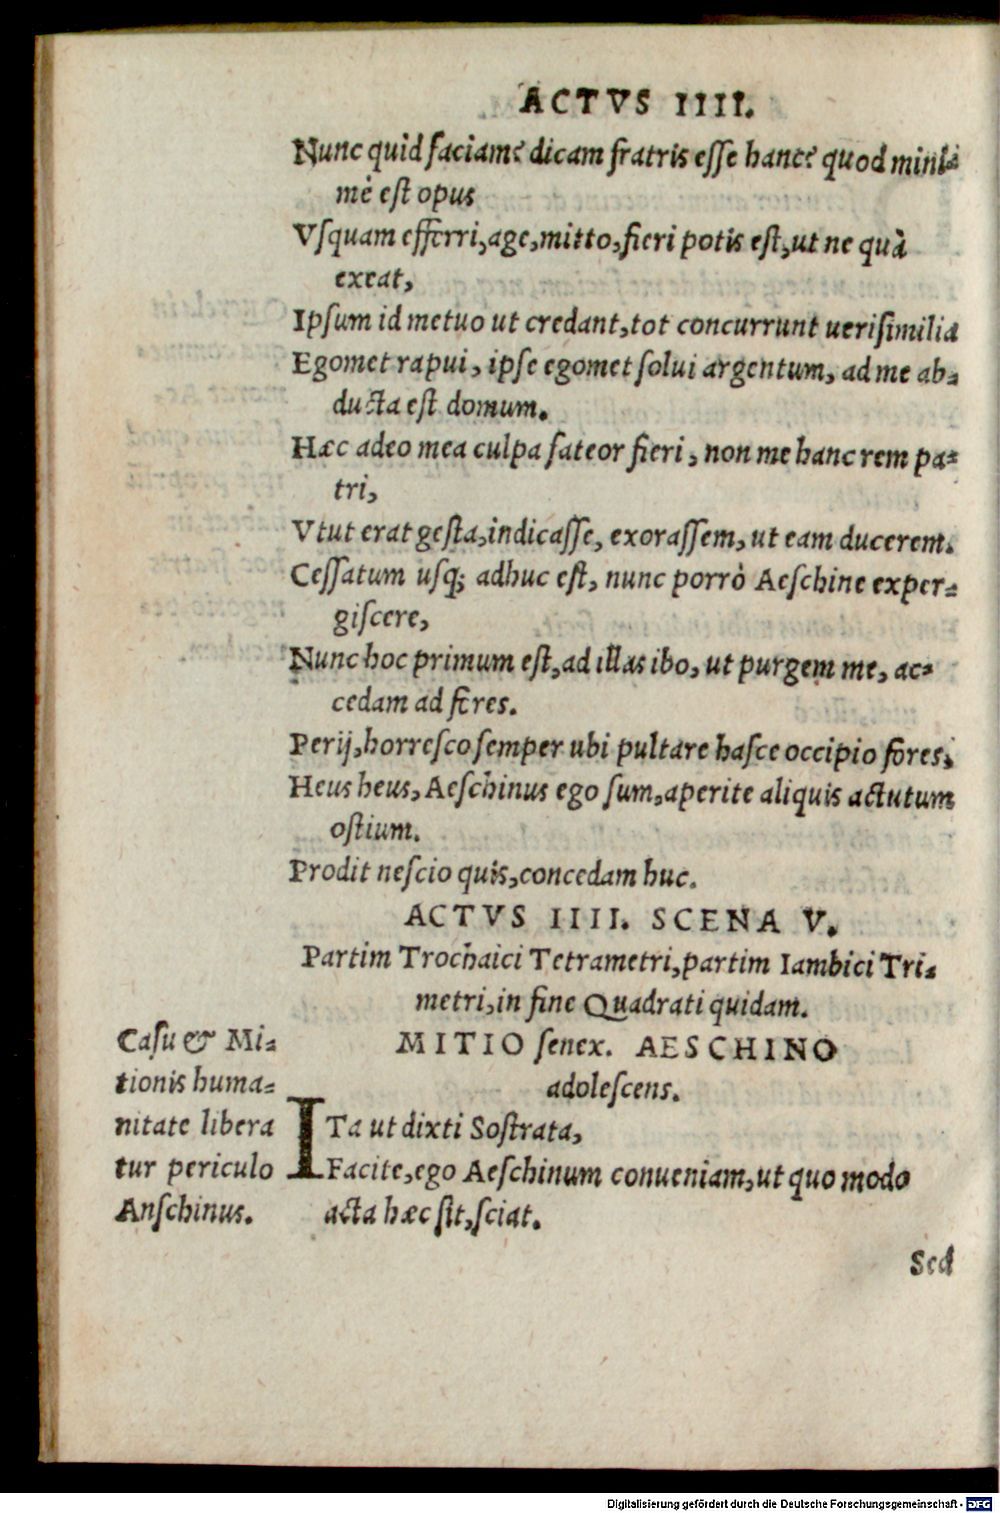 ACTVS IIII.
Nunc quid faciam? dicam fratris esse hanc? quod mini-
mè est opus
Vsquam efferri, age, mitto, fieri potis est, ut ne quà
exeat,
Ipsum id metuo ut credant, tot concurrunt uerisimilia
Egomet rapui, ipse egomet solui argentum, ad me ab-
ducta est domum.
Hæc adeo mea culpa fateor fieri, non me hanc rem pa-
tri,
Vtut erat gesta, indicasse, exorassem, ut eam ducerem.
Cessatum usq; adhuc est, nunc porrò Aeschine exper-
giscere,
Nunc hoc primum est, ad illas ibo, ut purgem me, ac-
cedam ad fores.
Perij, horresco semper ubi pultare hasce occipio fores,
Heus heus, Aeschinus ego sum, aperite aliquis actutum
ostium.
Prodit nescio quis, concedam huc.
ACTVS IIII. SCENA V.
Partim Trochaici Tetrametri, partim Iambici Tri-
metri, in fine Quadrati quidam.
MITIO senex. AESCHINO
adolescens.
Casu & Mi-
tionis huma-
nitate libera
tur periculo
Anschinus.
ITa ut dixti Sostrata,
Facite, ego Aeschinum conueniam, ut quo modo
acta hæc sit, sciat.
Sed
Digitalisierung gefördert durch die Deutsche Forschungsgemeinschaft - DFG